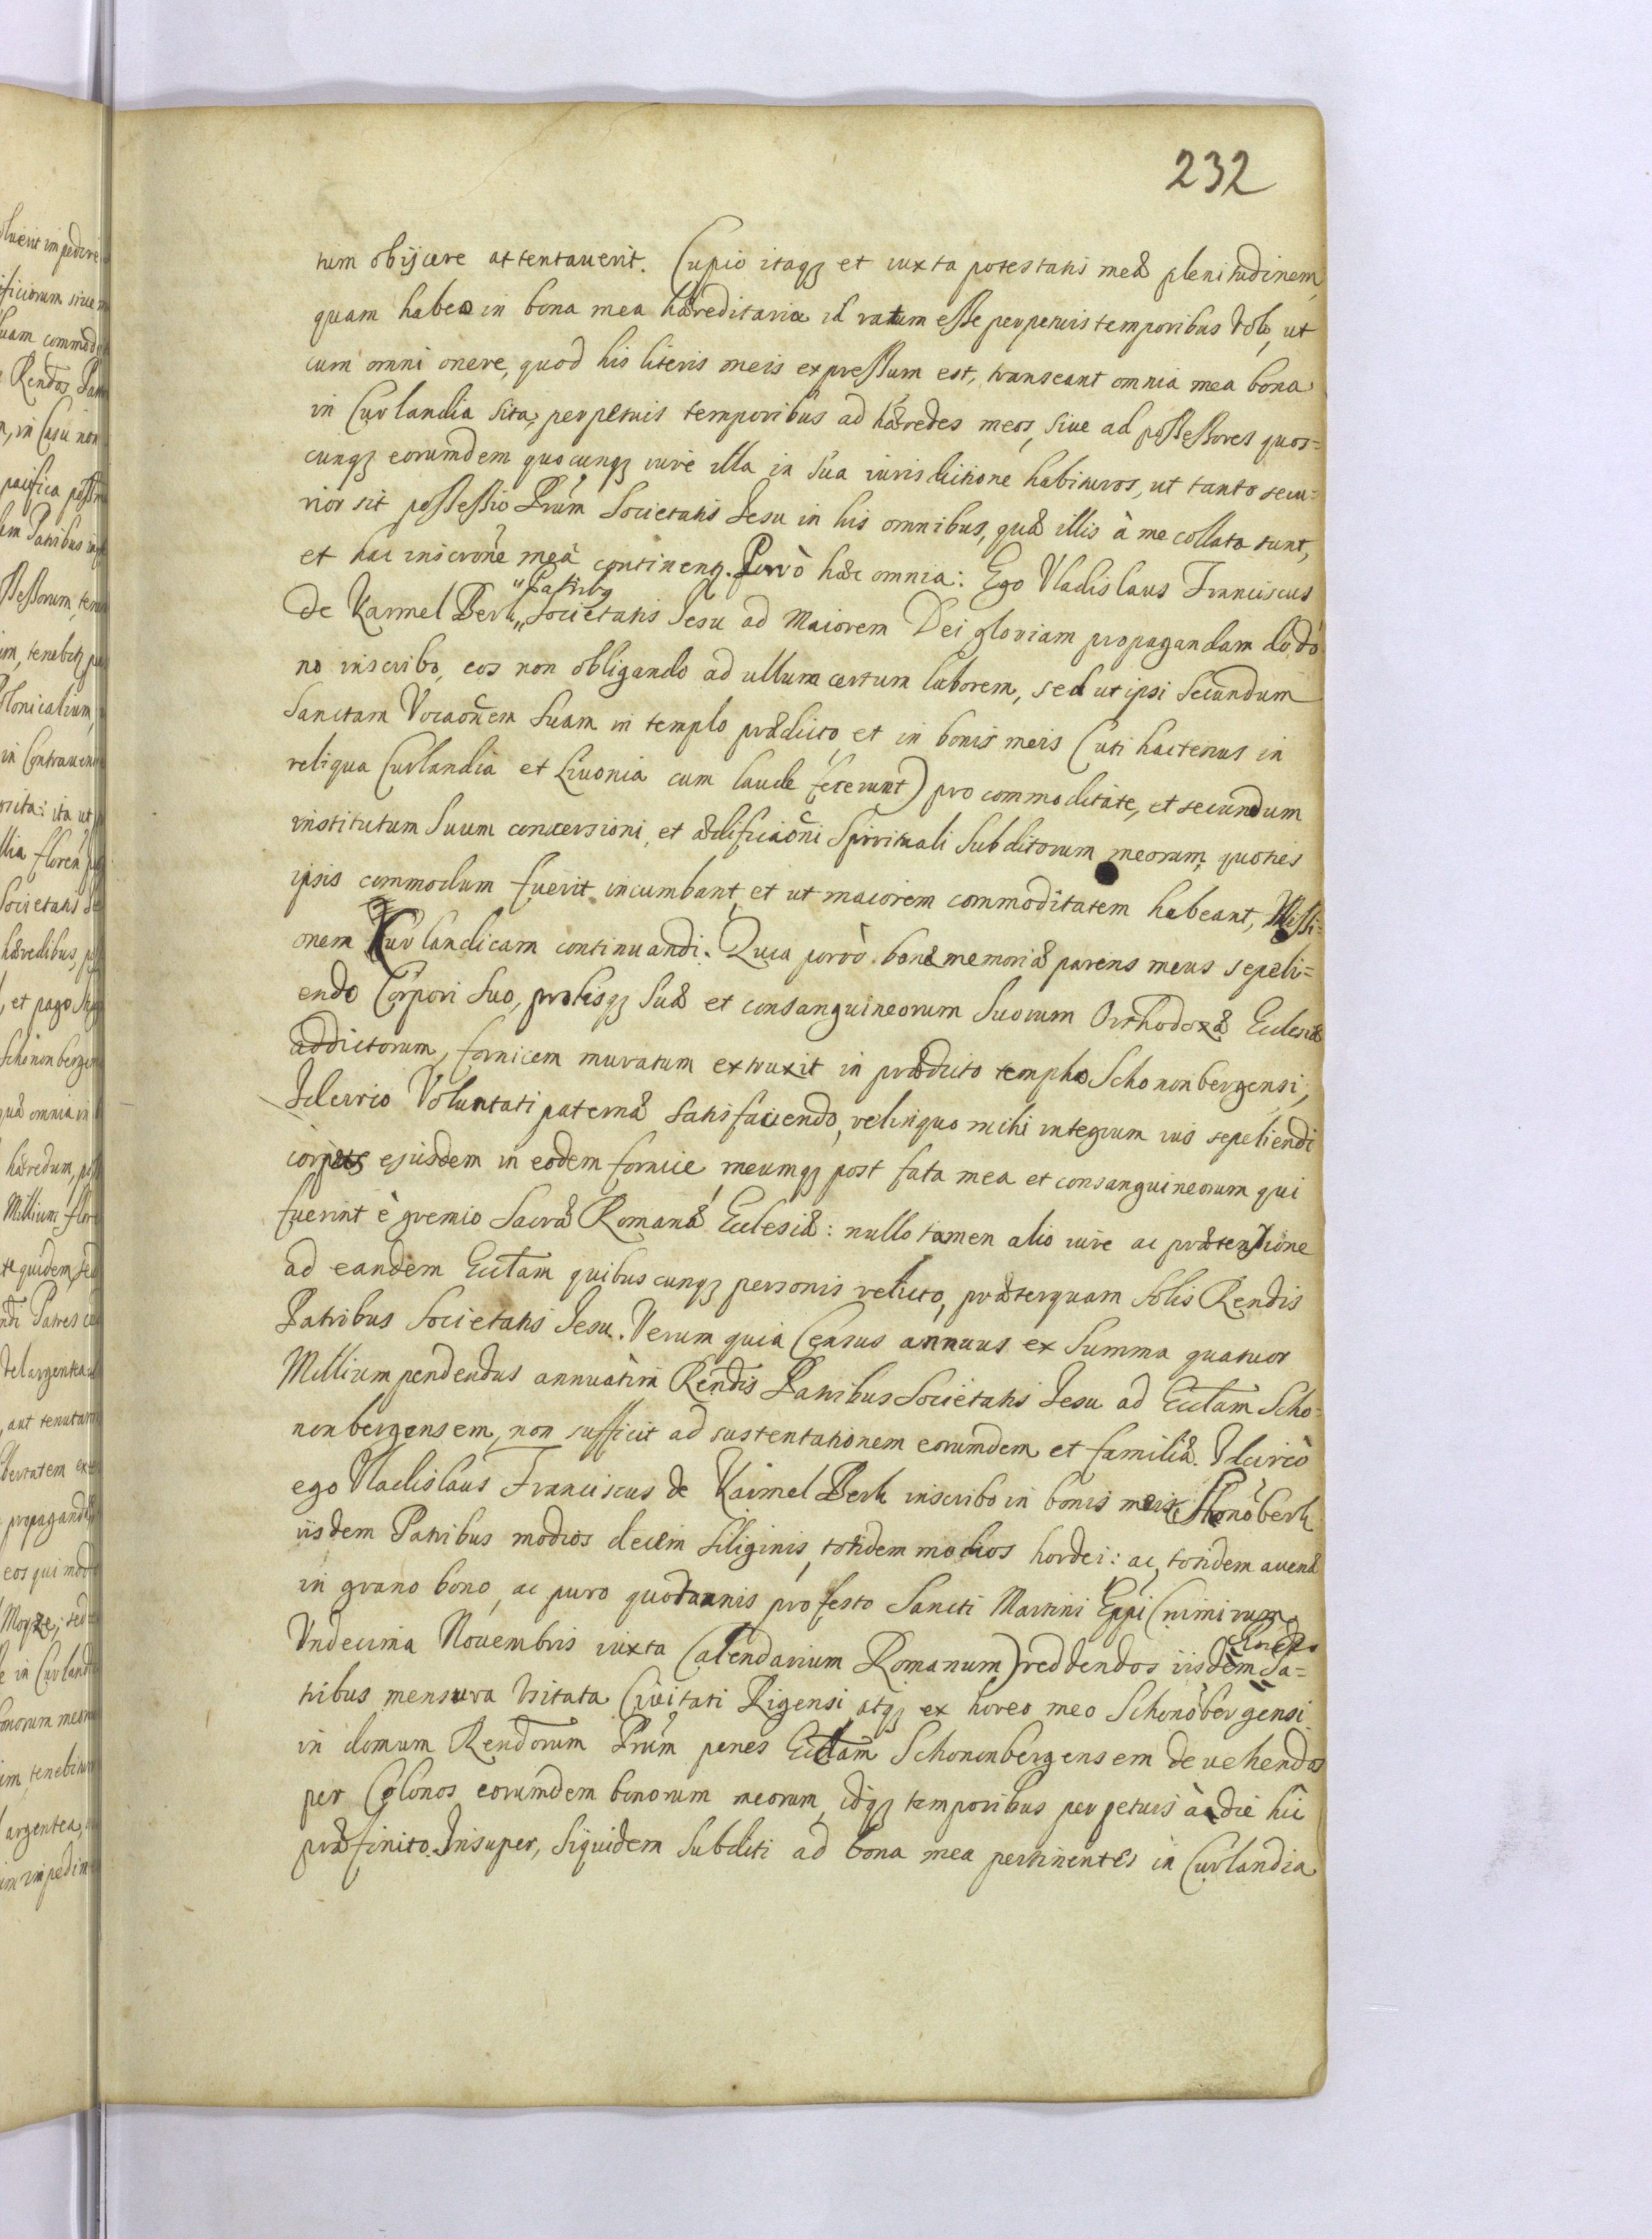 232
tum obijcere attentaverit. Cupio itaq₃ et iuxta potestatis meæ plenitudinem,
quam habeo in bona mea hæreditaria id ratum esse perpetuis temporibus volo, ut
cum omni onere, quod his literis meis expressum est, transeant omnia mea bona
in Curlandia sita, perpetuis temporibus ad hæredes meos, siue ad possessores quos=
cunq₃ eorumdem quocunq₃ iure illa in sua iurisdictione habituros, ut tanto secu=
rior sit possessio Prũm Societatis Jesu in his omnibus, quæ illis à me collata sunt,
et hac inscrõne meâ continenq. Porrò hæc omnia: Ego Vladislaus Franciscus
Patribq
de Karmel Berk Societatis Jesu ad Maiorem Dei gloriam propagandam do do
no inscribo, eos non obligando ad ullum certum laborem, sed ut ipsi secundum
Sanctam Vocaoñem suam in templo prædicto, et in bonis meis (uti hactenus in
reliqua Curlandia et Liuonia cum laude fecerunt) pro commoditate, et secundum
institutum suum conversioni, et ædificiaoñi Spirituali Subditorum meorum quoties
ipsis commodum fuerit incumbant, et ut maiorem commoditatem habeant, Missi=
onem Curlandicam continuandi. Quia porrò bonæ memoriæ parens meus sepeli=
endo Corpori suo, prolisq₃ suæ et consanguineorum suorum Orthodoxæ Eclesiæ
addictorum, fornicem muratum extruxit in prædicto templo Schononbergensi,
Idcirco Voluntati paternæ satisfaciendo, relinquo mihi integrum ius sepeliendi
corpus ejusdem in eodem fornice, meumq₃ post fata mea et consanguineorum qui
fuerint è gremio Sacræ Romanæ Ecclesiæ: nullo tamen alio iure ac prætensione
ad eandem Ecctam quibuscunq₃ personis relicto, præterquam solis Rendis
Patribus Societatis Jesu. Verum quia Census annuus ex Summa quatuor
Millium pendendus annuatim Rendis Patribus Societatis Jesu ad Ecctam Scho=
nonbergensem, non sufficit ad sustentationem eorumdem et familiæ. Idcircò
ego Vladislaus Franciscus de Karmel Berk inscribo in bonis meis Shonoberk
iisdem Patribus modios decem siliginis, totidem modios hordei: ac totidem avenæ
in grano bono, ac puro quotannis pro festo Sancti Martini Eppi (nimirum
Rendis
Vndecima Novembris iuxta Calendarium Romanum) reddendos iisdem Pa=
tribus mensura Usitata Civitati Rigensi atq₃ ex horeo meo Schonobergensi
in domum Rendorum Prũm penes Ecctam Schononbergensem devehendos
per Colonos eorumdem bonorum meorum, idq₃ temporibus perpetuis à die hic
præfinito. Insuper, siquidem subditi ad bona mea pertinentes in Curlandia